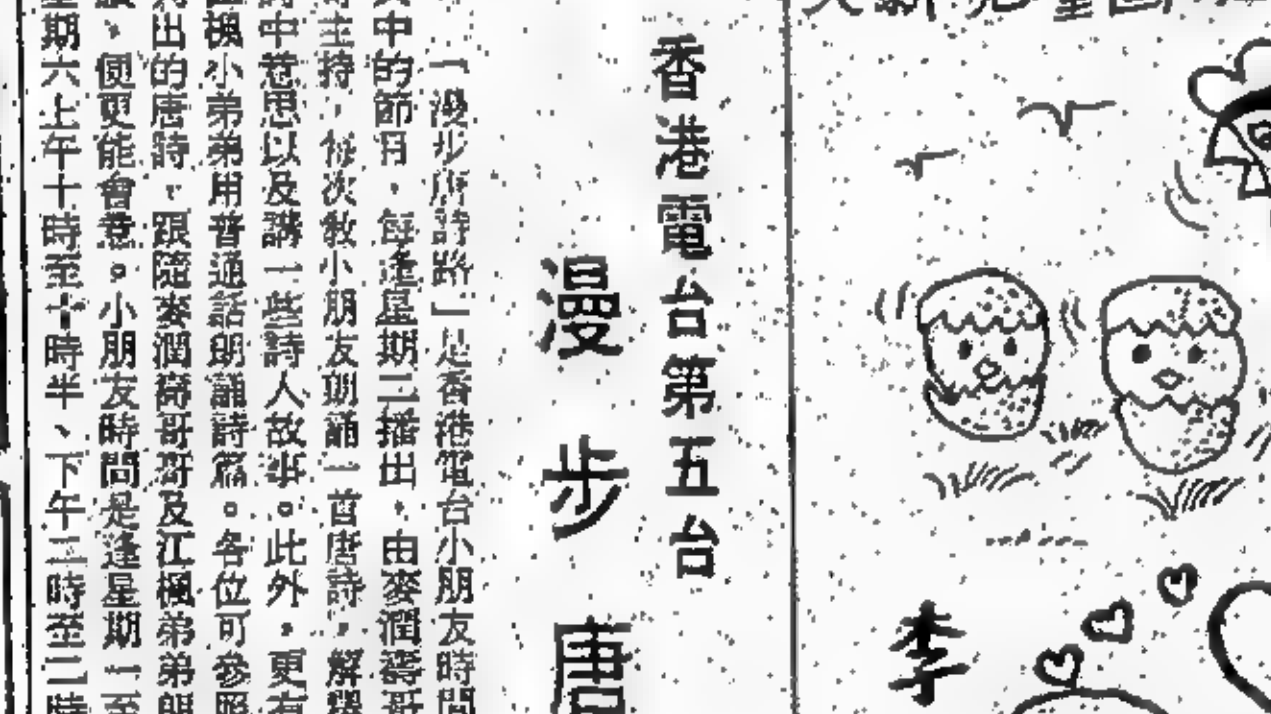 香港電台第五台
漫步唐
「漫步唐詩路」是香港電台小朋友時間
中的節目，每逢星期二播出，由麥潤壽哥
主持，每次教小朋友朗誦一首唐詩，解釋
中意思以及講一些詩人故事。此外，更有
楓小弟弟用普通話朗誦詩篇。各位可參照
出的唐詩，跟隨麥潤壽哥哥及江楓弟弟朗
，便更能會意。小朋友時間是逢星期一至
期六上午十時至十時半、下午二時至二時
李